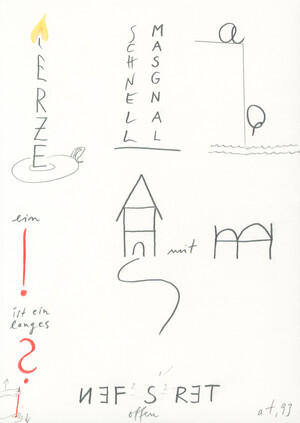 ERZE
SCHNELL
MASGNAL
a
a
ein
!
ist ein
langes
?
mit
ИƎF S RƎT
offen
at, 93